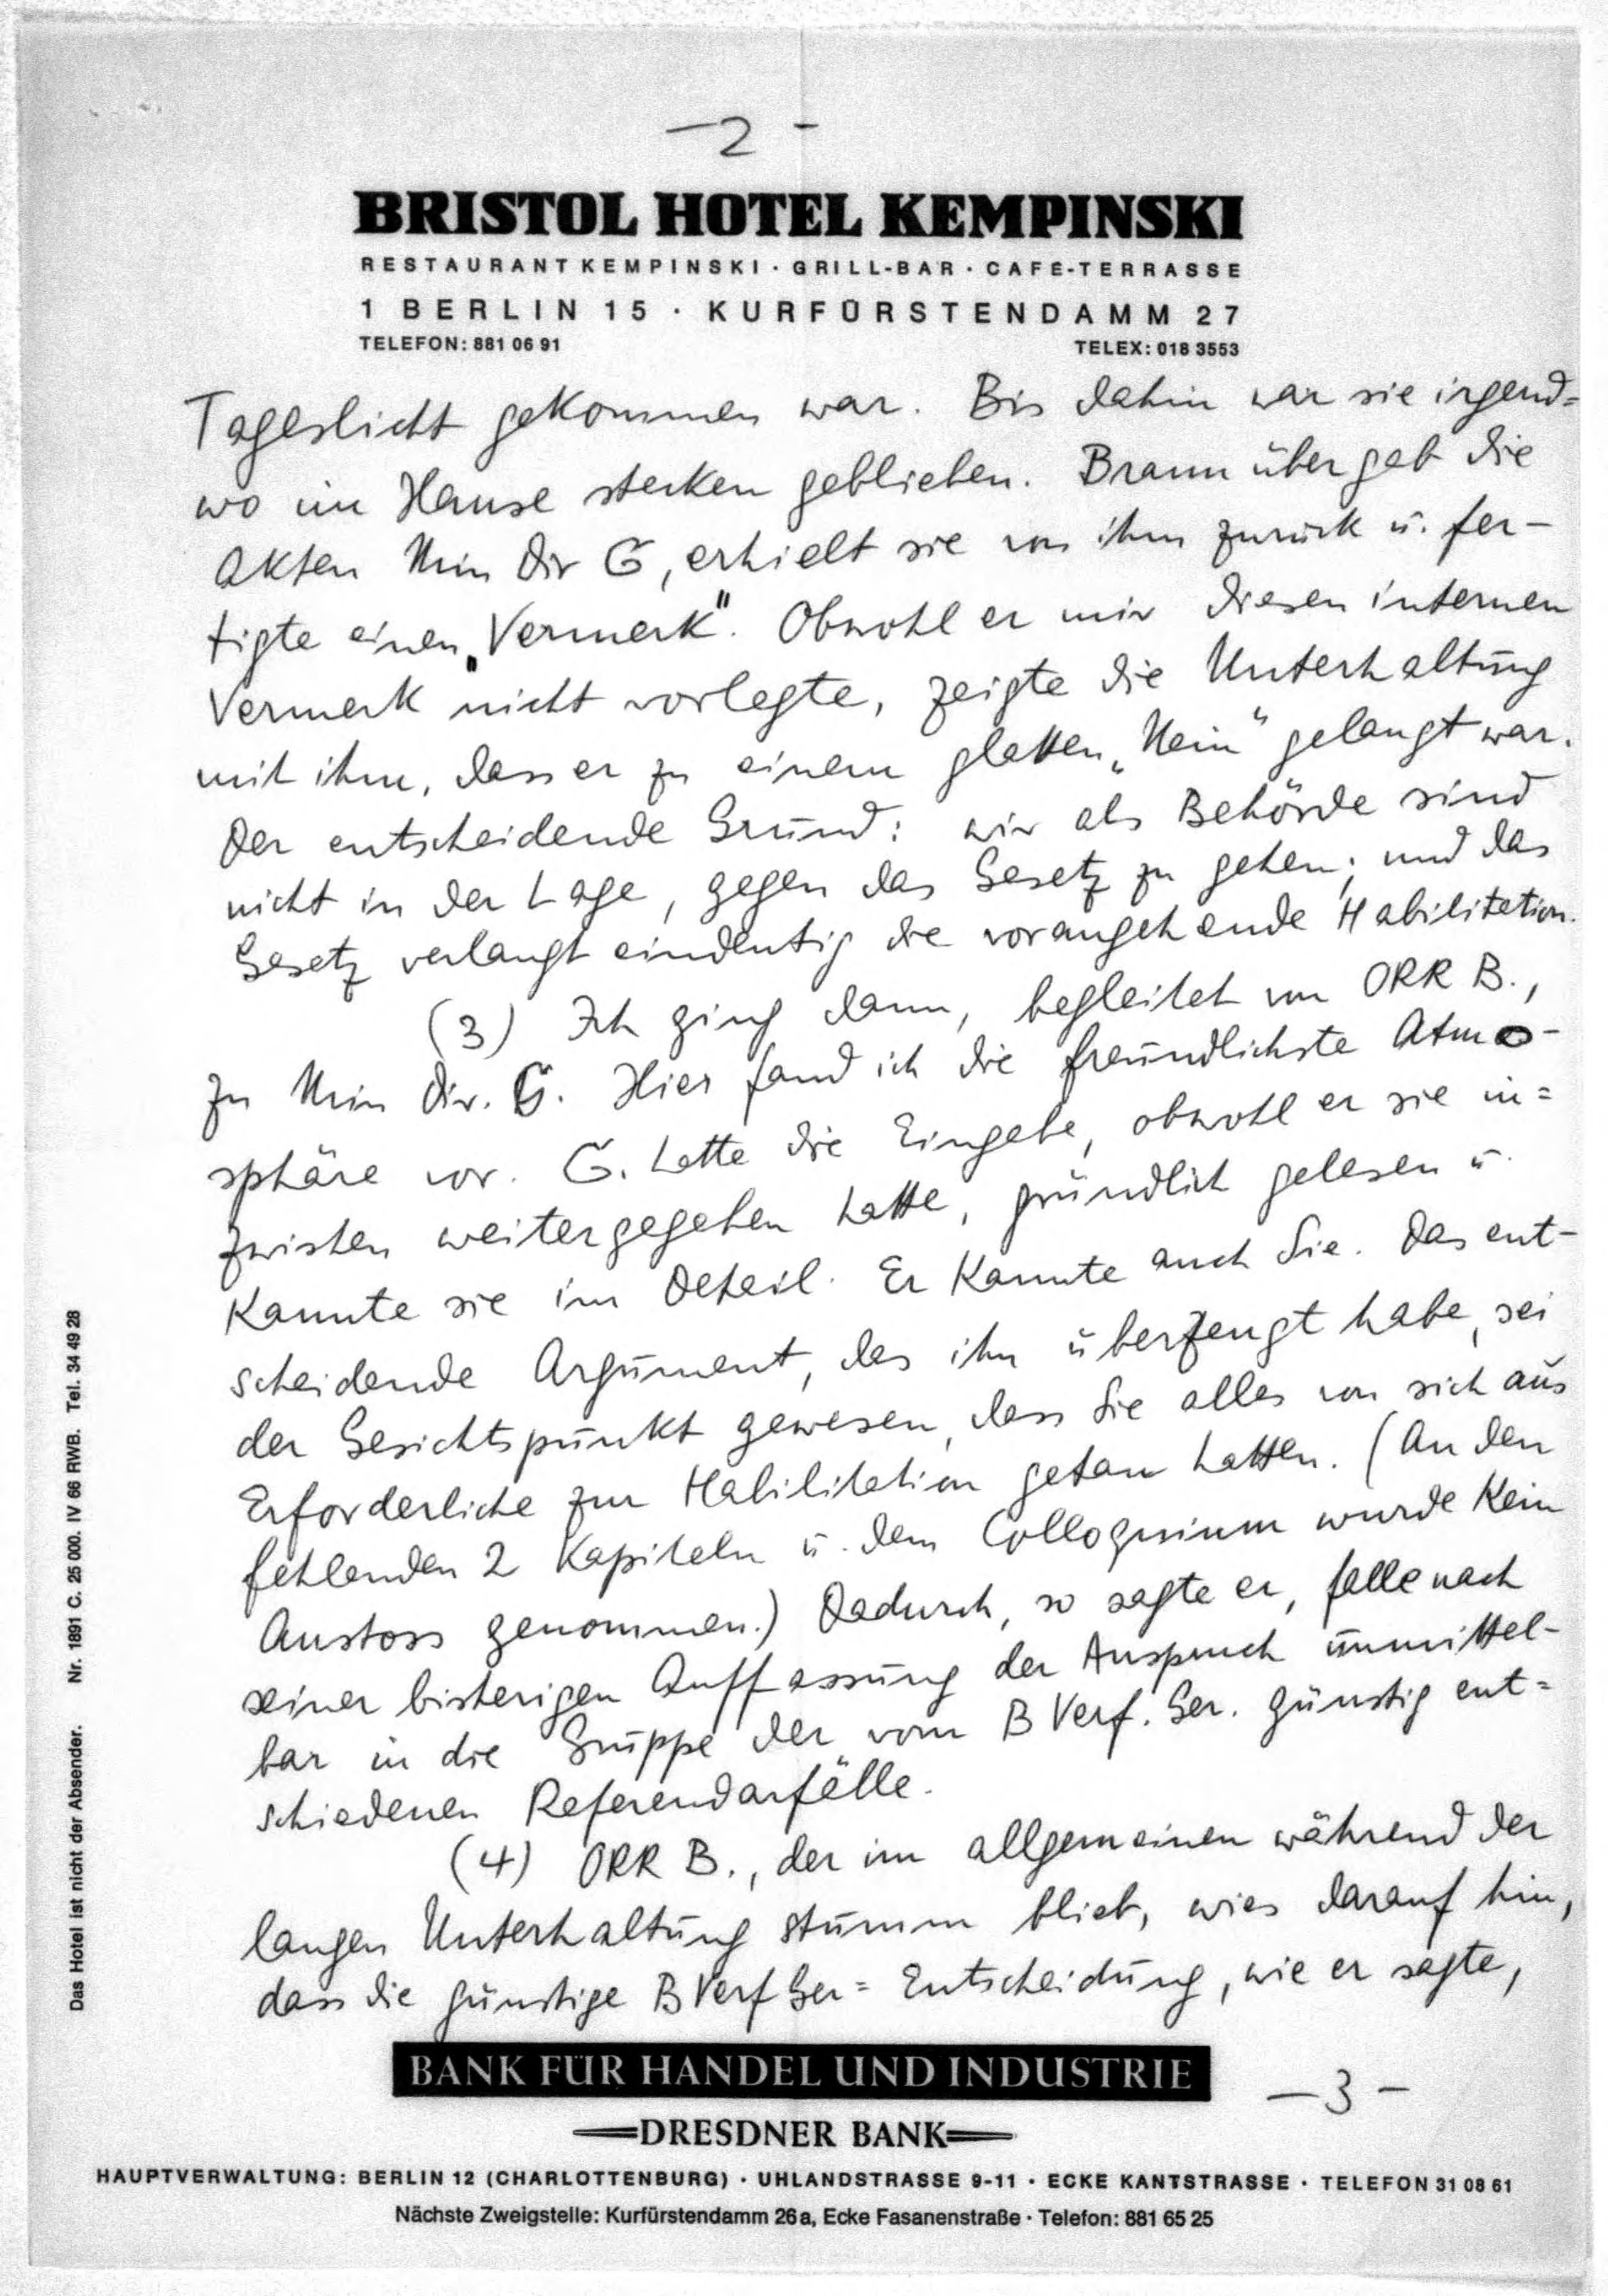 –2–
BRISTOL HOTEL KEMPINSKI
RESTAURANT KEMPINSKI · GRILL-BAR · CAFE-TERRASSE
1 BERLIN 15 · KURFÜRSTENDAMM 27
TELEFON: 881 06 91 TELEX: 018 3553
Tageslicht gekommen war. Bis dahin war sie irgend=
wo im Hause stecken geblieben. Braun übergab die
Akten Min Dir G, erhielt sie von ihm zurück u. fer-
tigte einen „Vermerk". Obwohl er mir diesen internen
Vermerk nicht vorlegte, zeigte die Unterhaltung
mit ihm, dass er zu einem glatten „Nein" gelangt war.
Der entscheidende Grund: wir als Behörde sind
nicht in der Lage, gegen das Gesetz zu gehen; und das
Gesetz verlangt eindeutig die vorangehende Habilitation.
(3) Ich ging dann, begleitet von ORR B.,
zu Min Dir. G. Hier fand ich die freundlichste Atmo-
sphäre vor. G. hatte die Eingabe, obwohl er sie in=
zwischen weitergegeben hatte, gründlich gelesen u.
kannte sie im Detail. Er kannte auch Sie. Das ent-
scheidende Argument, das ihn überzeugt habe, sei
der Gesichtspunkt gewesen, dass Sie alles von sich aus
Erforderliche zur Habilitation getan hatten. (An den
fehlenden 2 Kapiteln u. dem Colloquium wurde kein
Anstoss genommen.) Dadurch, so sagte er, falle nach
seiner bisherigen Auffassung der Anspruch unmittel-
bar in die Gruppe der vom B Verf. Ger. günstig ent=
schiedenen Referendarfälle.
(4) ORR B., der im allgemeinen während der
langen Unterhaltung stumm blieb, wies darauf hin,
dass die günstige B Verf Ger= Entscheidung, wie er sagte,
BANK FÜR HANDEL UND INDUSTRIE
–3–
DRESDNER BANK
HAUPTVERWALTUNG: BERLIN 12 (CHARLOTTENBURG) · UHLANDSTRASSE 9-11 · ECKE KANTSTRASSE · TELEFON 31 08 61
Nächste Zweigstelle: Kurfürstendamm 26a, Ecke Fasanenstraße · Telefon: 881 65 25
Das Hotel ist nicht der Absender. Nr. 1891 C. 25 000. IV 66 RWB. Tel. 34 49 28